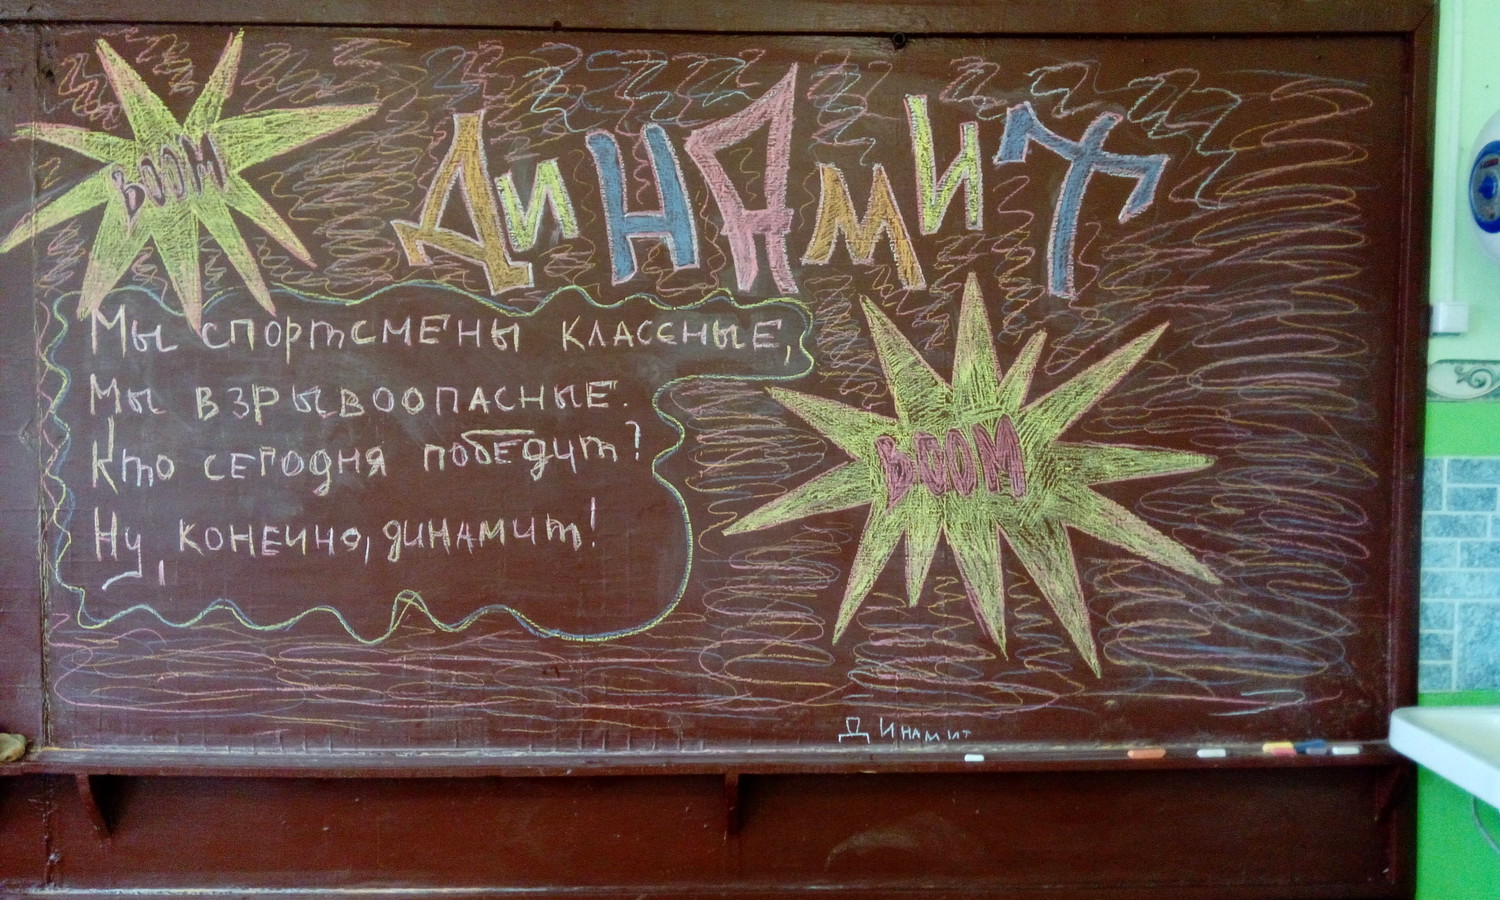 BOOM
ДИНАМИТ
Мы спортсмены классные,
Мы взрывоопасные.
Кто сегодня победит?
Ну, конечно, динамит!
BOOM
Динамит